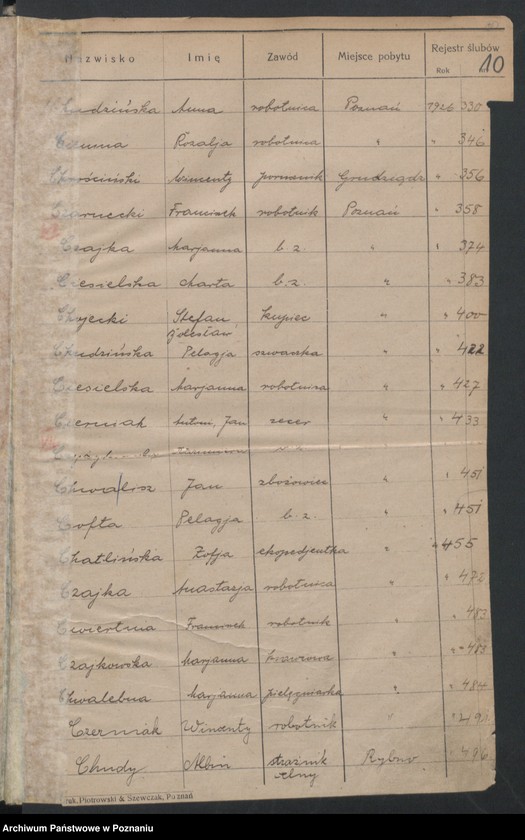 Nazwisko Imię Zawód Miejsce pobytu Rejestr ślubów
Rok 10
Chudzińska Anna robotnica Poznań 1926 330
Rozalja robotnica " " 346
Wincenty Grudziądz " 356
Czarnecki Franciszek robotnik Poznań " 358
Czajka Marjanna b. z. " " 374
Ciesielska Marta b. z. " " 383
Stefan kupiec " " 400
Zdzisław
Chudzińska Pelagja szwaczka " " 422
Ciesielska Marjanna robotnica " " 427
Czerniak Antoni, Jan zecer " " 433
Chwalisz Jan zbożowiec " " 451
Cofta Pelagja b. z. " " 451
Chatlińska Zofja ekspedjentka " " 455
Czajka Anastazja robotnica " " 472
Ćwiertnia Franciszek robotnik " " 483
Czajkowska Marjanna krawcowa " " 483
Chwalebna Marjanna pielęgniarka " " 484
Czerniak Wincenty robotnik " " 491
Chudy Albin strażnik Rybno " 496
celny
Piotrowski & Szewczak, Poznań
Archiwum Państwowe w Poznaniu